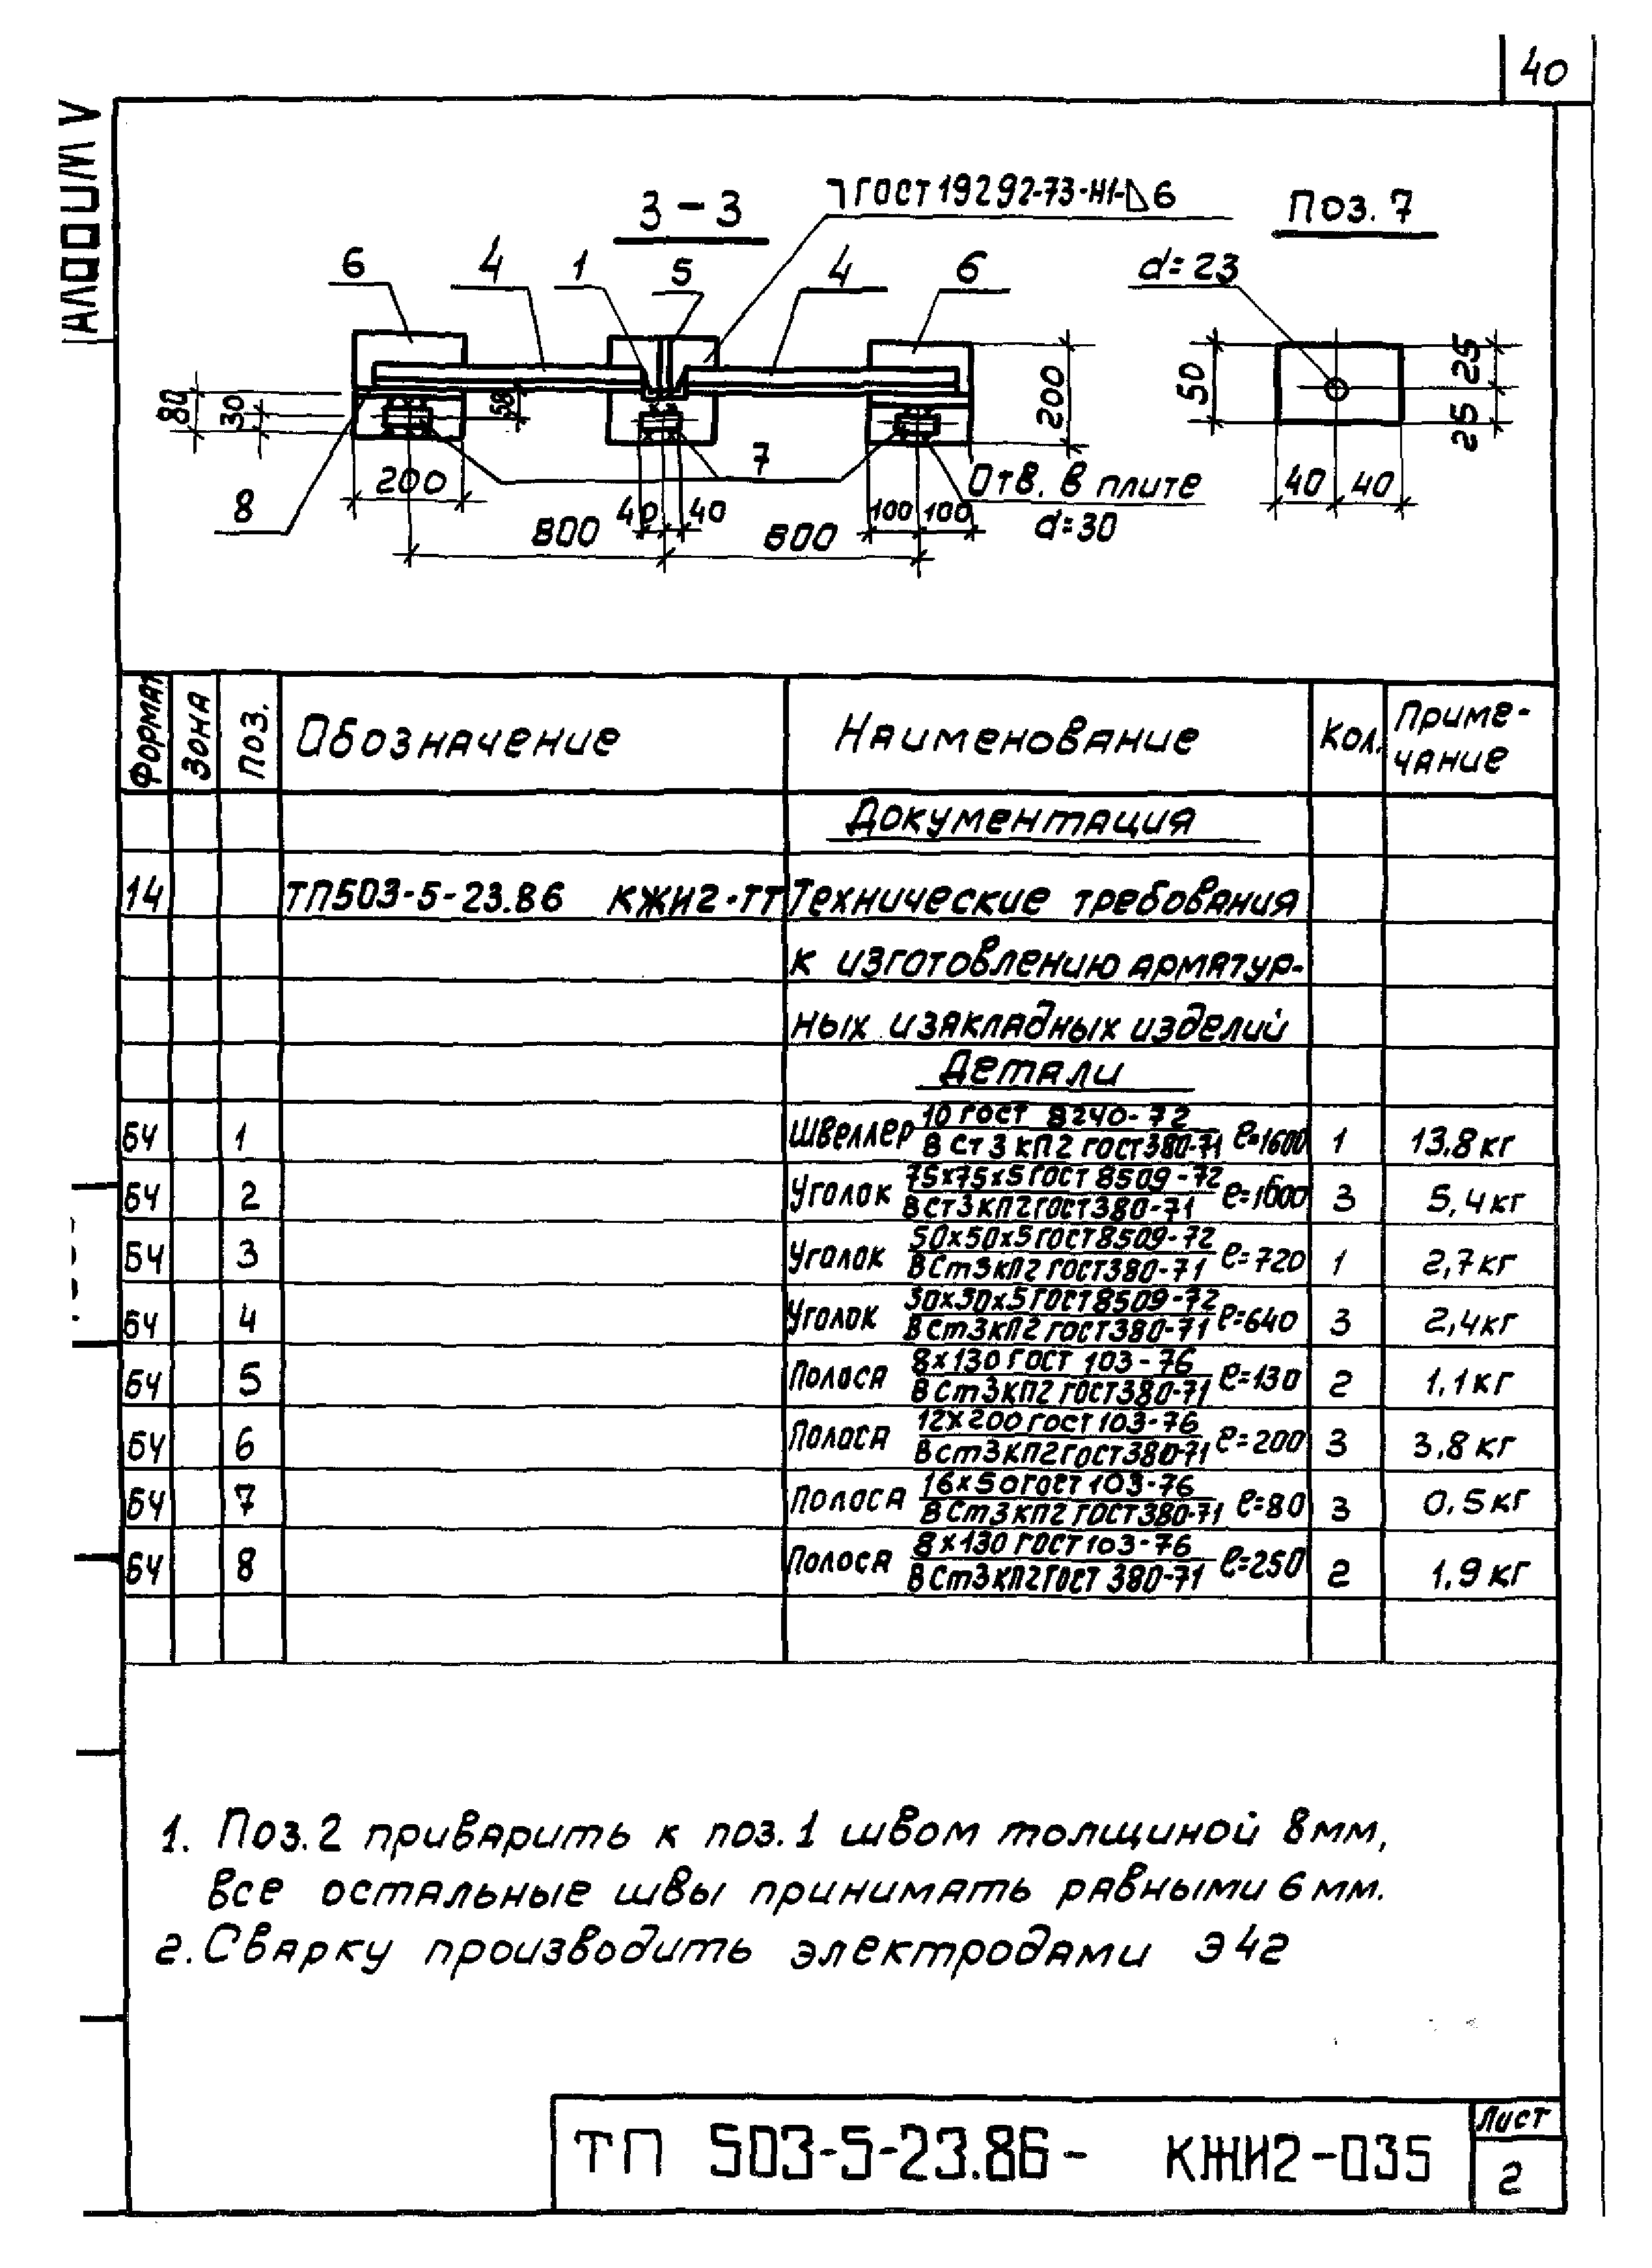 40
Альбом V
3-3
ГОСТ 19292-73-Н1-◺6
Поз. 7
6 4 1 5 4 6
d=23
80 30 50 200 50 25 25
8
200
7
Отв. в плите
d=30
800 40 40 800 100 100
40 40
Формат Зона Поз. Обозначение Наименование Кол. Приме-
чание
Документация
14 ТП503-5-23.86 КЖИ2-ТТ Технические требования
к изготовлению арматур-
ных и закладных изделий
Детали
БЧ 1 Швеллер 10 ГОСТ 8240-72 / ВСт3кп2 ГОСТ380-71 ℓ=1600 1 13,8 кг
БЧ 2 Уголок 75х75х5 ГОСТ 8509-72 / ВСт3кп2 ГОСТ380-71 ℓ=1600 3 5,4 кг
БЧ 3 Уголок 50х50х5 ГОСТ 8509-72 / ВСт3кп2 ГОСТ380-71 ℓ=720 1 2,7 кг
БЧ 4 Уголок 30х30х5 ГОСТ 8509-72 / ВСт3кп2 ГОСТ380-71 ℓ=640 3 2,4 кг
БЧ 5 Полоса 8х130 ГОСТ 103-76 / ВСт3кп2 ГОСТ380-71 ℓ=130 2 1,1 кг
БЧ 6 Полоса 12х200 ГОСТ 103-76 / ВСт3кп2 ГОСТ380-71 ℓ=200 3 3,8 кг
БЧ 7 Полоса 16х50 ГОСТ 103-76 / ВСт3кп2 ГОСТ380-71 ℓ=80 3 0.5 кг
БЧ 8 Полоса 8х130 ГОСТ 103-76 / ВСт3кп2 ГОСТ 380-71 ℓ=250 2 1,9 кг
1. Поз.2 приварить к поз.1 швом толщиной 8 мм,
все остальные швы принимать равными 6 мм.
2. Сварку производить электродами Э42
ТП 503-5-23.86- КЖИ2-035
Лист
2